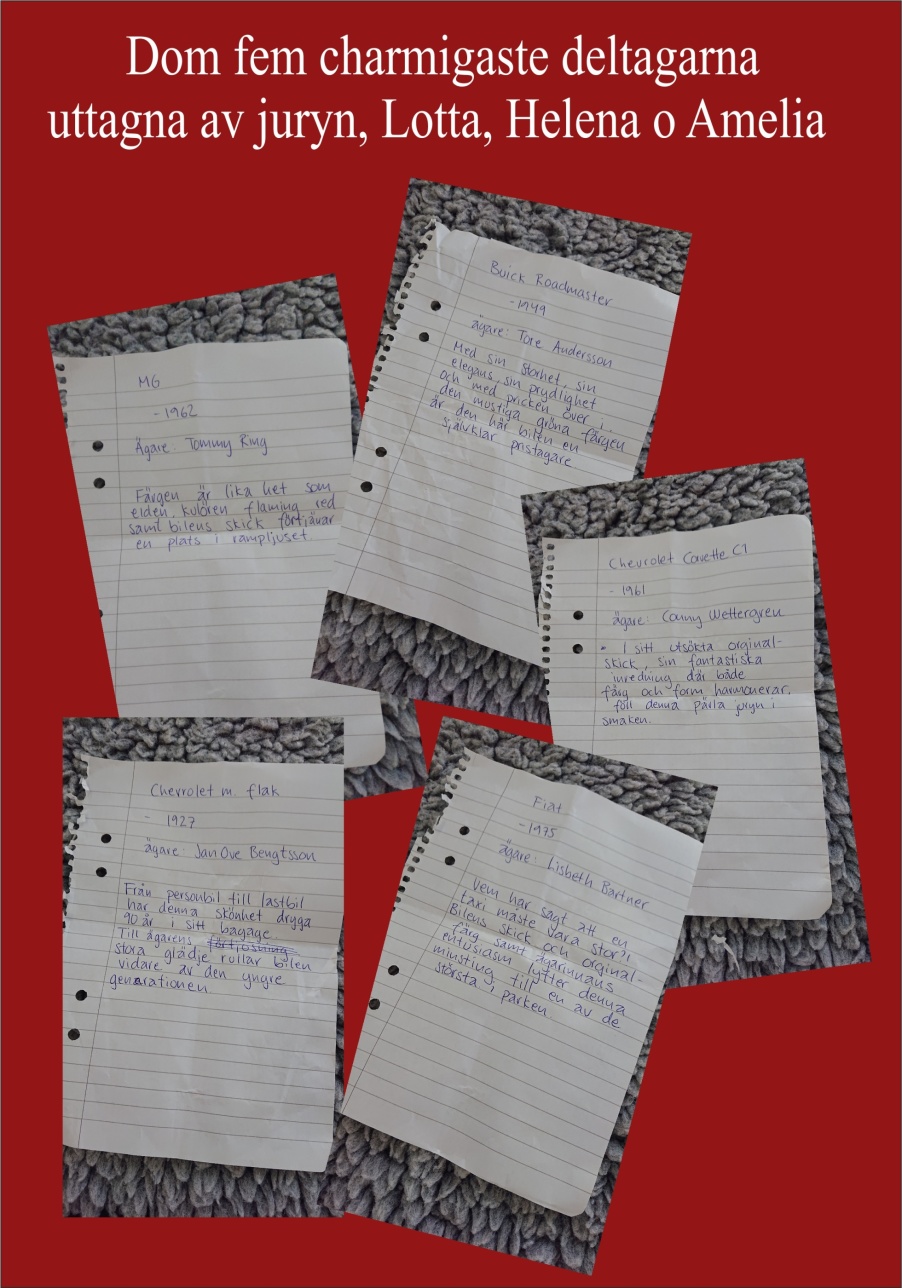 Dom fem charmigaste deltagarna
uttagna av juryn, Lotta, Helena o Amelia
Buick Roadmaster
-1949
ägare: Tore Andersson
Med sin storhet, sin
elegans, sin prydlighet
och med pricken över i,
den mustiga gröna färgen
är den här bilen en
självklar pristagare
MG
-1962
Ägare: Tommy Ring
Färgen är lika het som
elden, kulören flaming red
samt bilens skick förtjänar
en plats i rampljuset
Chevrolet Corvette C1
- 1961
ägare: Conny Wettergren
• I sitt utsökta orginal-
skick, sin fantastiska
inredning där både
färg och form harmonerar,
föll denna pärla juryn i
smaken.
Chevrolet m. flak
- 1927
ägare: Jan Ove Bengtsson
Från personbil till lastbil
har denna skönhet drygga
90 år i sitt bagage
Till ägarens förtjusning
stora glädje rullar bilen
vidare av den yngre
generationen
Fiat
-1975
ägare: Lisbeth Bartner
Vem har sagt att en
taxi måste vara stor?!
Bilens skick och orginal-
färg samt ägarinnans
entusiasm lyfter denna
minsting till en av de
största i parken